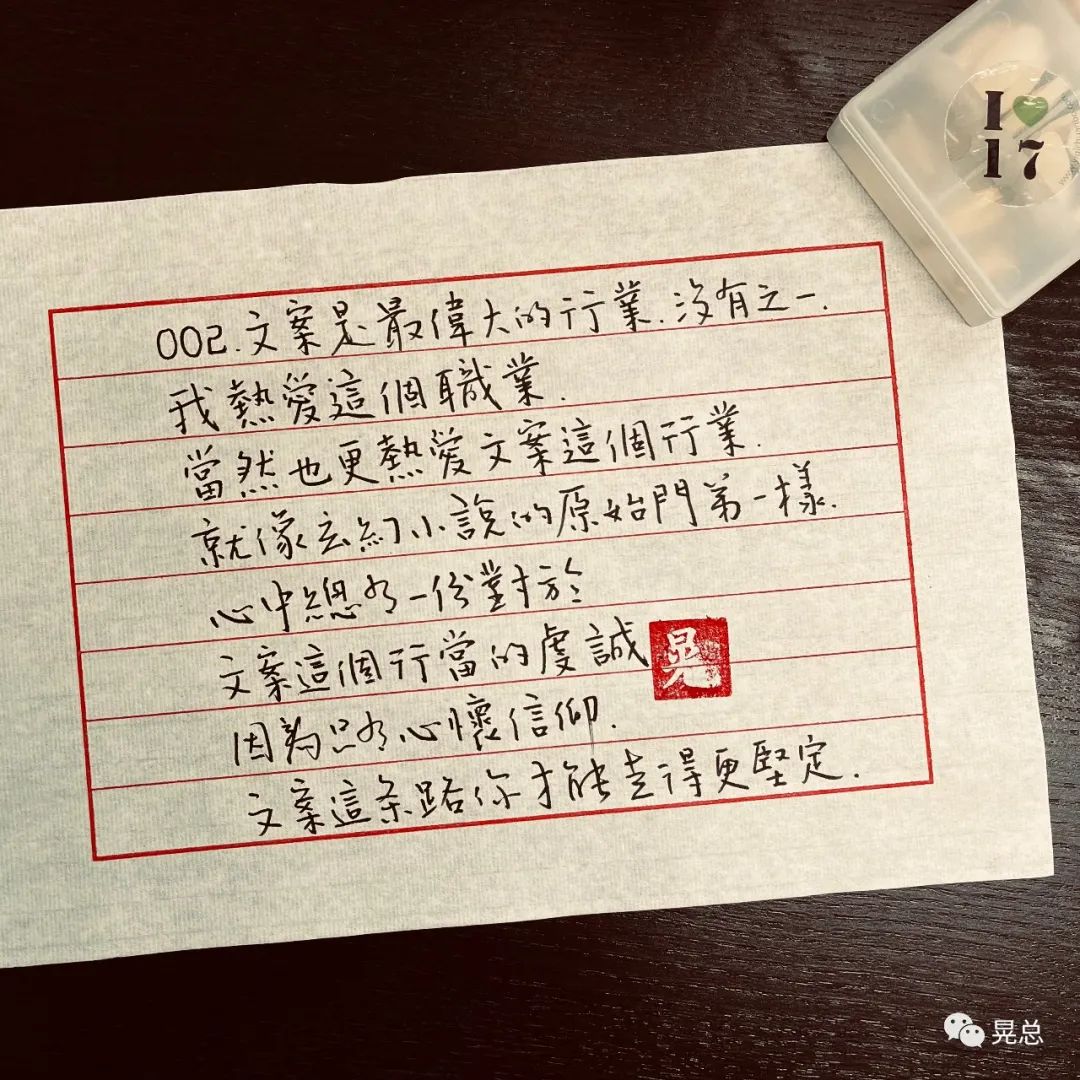 I 💚
17
002.文案是最偉大的行業.沒有之一.
我熱愛這個職業.
當然也更熱愛文案這個行業.
就像玄幻小說的原始門第一樣.
心中總有一份對於
文案這個行當的虔誠
晃
因為只有心懷信仰.
文案這条路你才能走得更堅定.
晃总